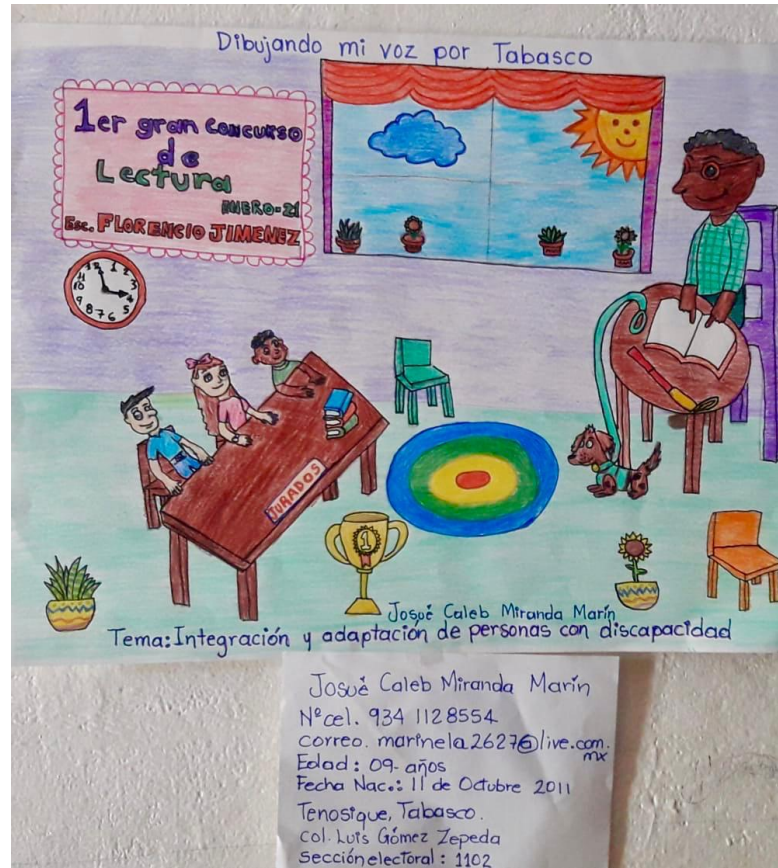 Dibujando mi voz por Tabasco
1er gran concurso
de
Lectura
ENERO-21
Esc. FLORENCIO JIMENEZ
12
1
2
3
4
5
6
7
8
9
10
11
JURADOS
1
Josué Caleb Miranda Marín
Tema: Integración y adaptación de personas con discapacidad
Josué Caleb Miranda Marín
Nº cel. 934 112 8554
correo. marinela.2627@live.com.
mx
Edad: 09- años
Fecha Nac.: 11 de Octubre 2011
Tenosique, Tabasco.
col. Luis Gómez Zepeda
Sección electoral: 1102